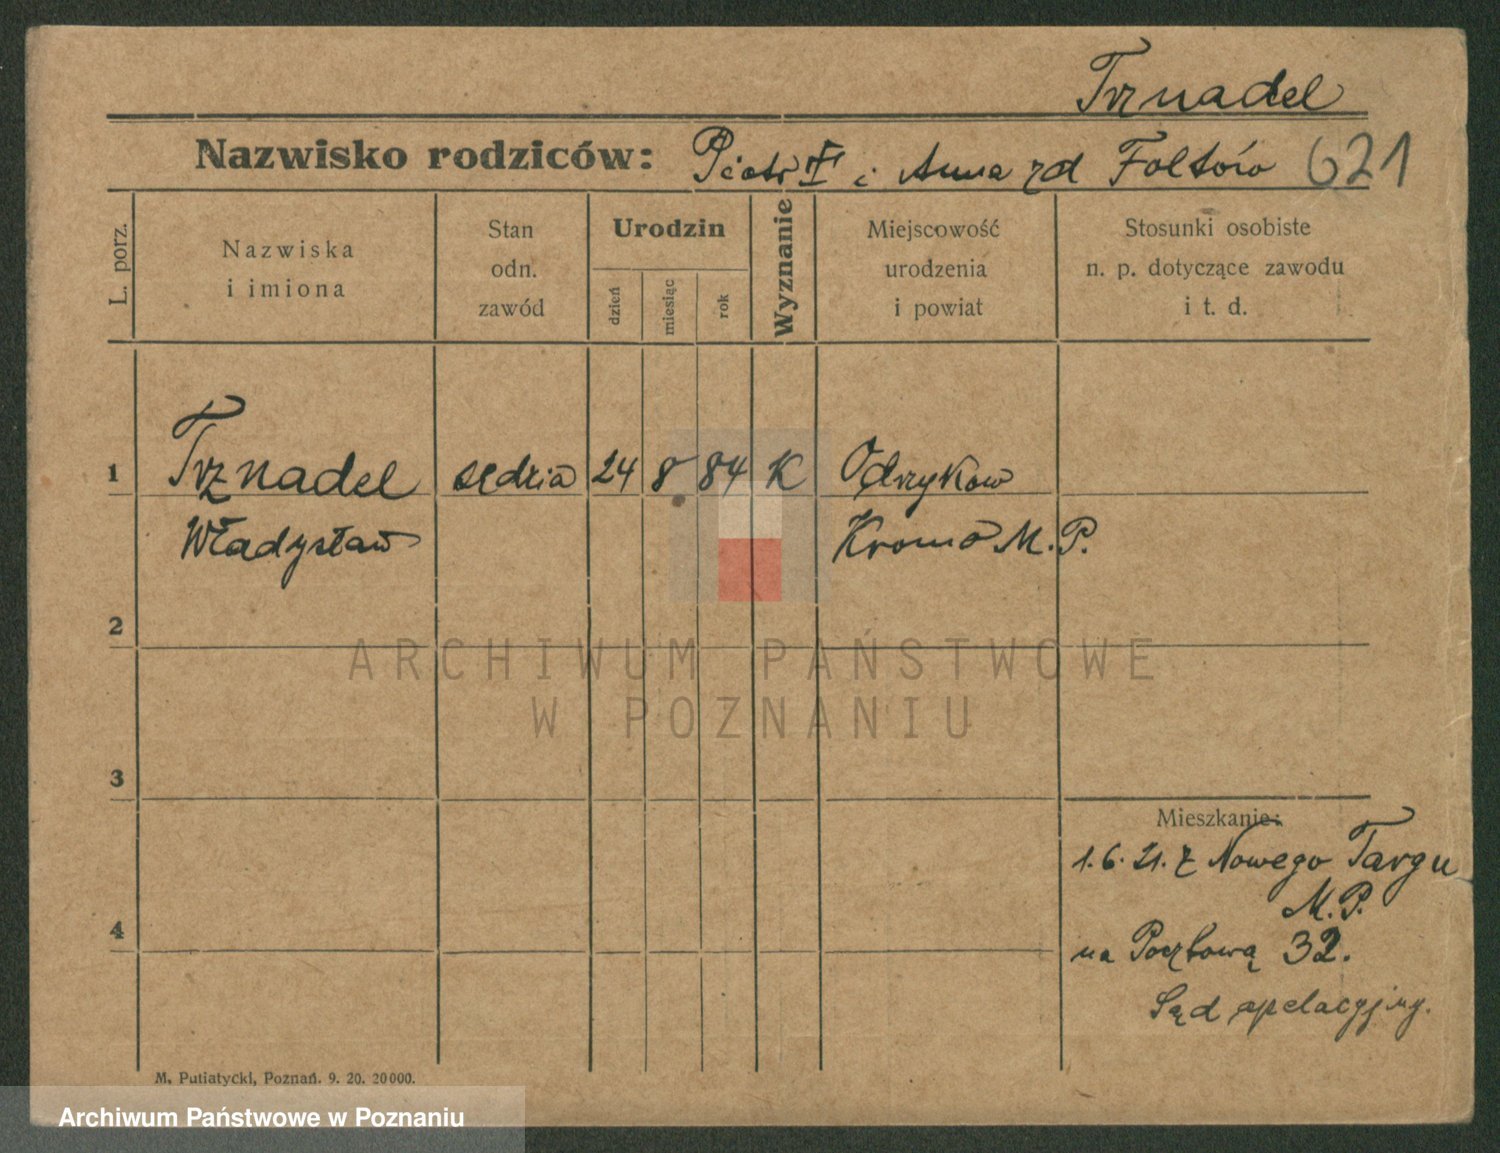 Trznadel
Nazwisko rodziców: Piotr † i Anna zd Foltów 621
L. porz.
Nazwiska
i imiona
Stan
odn.
zawód
Urodzin
dzień
miesiąc
rok
Wyznanie
Miejscowość
urodzenia
i powiat
Stosunki osobiste
n. p. dotyczące zawodu
i t. d.
1 Trznadel sędzia 24 8 84 K Odrzykow
Władysław Krosno M.P.
2
ARCHIWUM PAŃSTWOWE
W POZNANIU
3
Mieszkanie:
1.6.21. z Nowego Targu
M.P.
4
na Pocztową 32.
Sąd apelacyjny.
M. Putiatycki, Poznań. 9. 20. 20000.
Archiwum Państwowe w Poznaniu